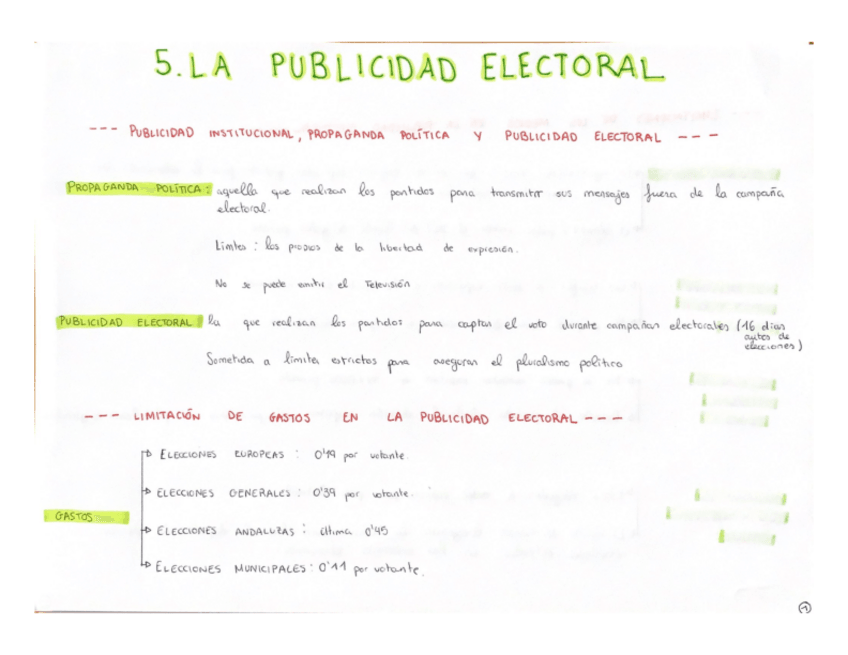 5. LA PUBLICIDAD ELECTORAL
--- PUBLICIDAD INSTITUCIONAL, PROPAGANDA POLÍTICA Y PUBLICIDAD ELECTORAL ---
PROPAGANDA POLÍTICA: aquella que realizan los partidos para transmitir sus mensajes fuera de la campaña
electoral.
Límites: los propios de la libertad de expresión.
No se puede emitir el Televisión
PUBLICIDAD ELECTORAL la que realizan los partidos para captar el voto durante campañas electorales (16 días
antes de
elecciones)
Sometida a límites estrictos para asegurar el pluralismo político
--- LIMITACIÓN DE GASTOS EN LA PUBLICIDAD ELECTORAL ---
ELECCIONES EUROPEAS: 0'19 por votante.
ELECCIONES GENERALES: 0'39 por votante.
GASTOS
ELECCIONES ANDALUZAS: última 0'45
ELECCIONES MUNICIPALES: 0'11 por votante.
1